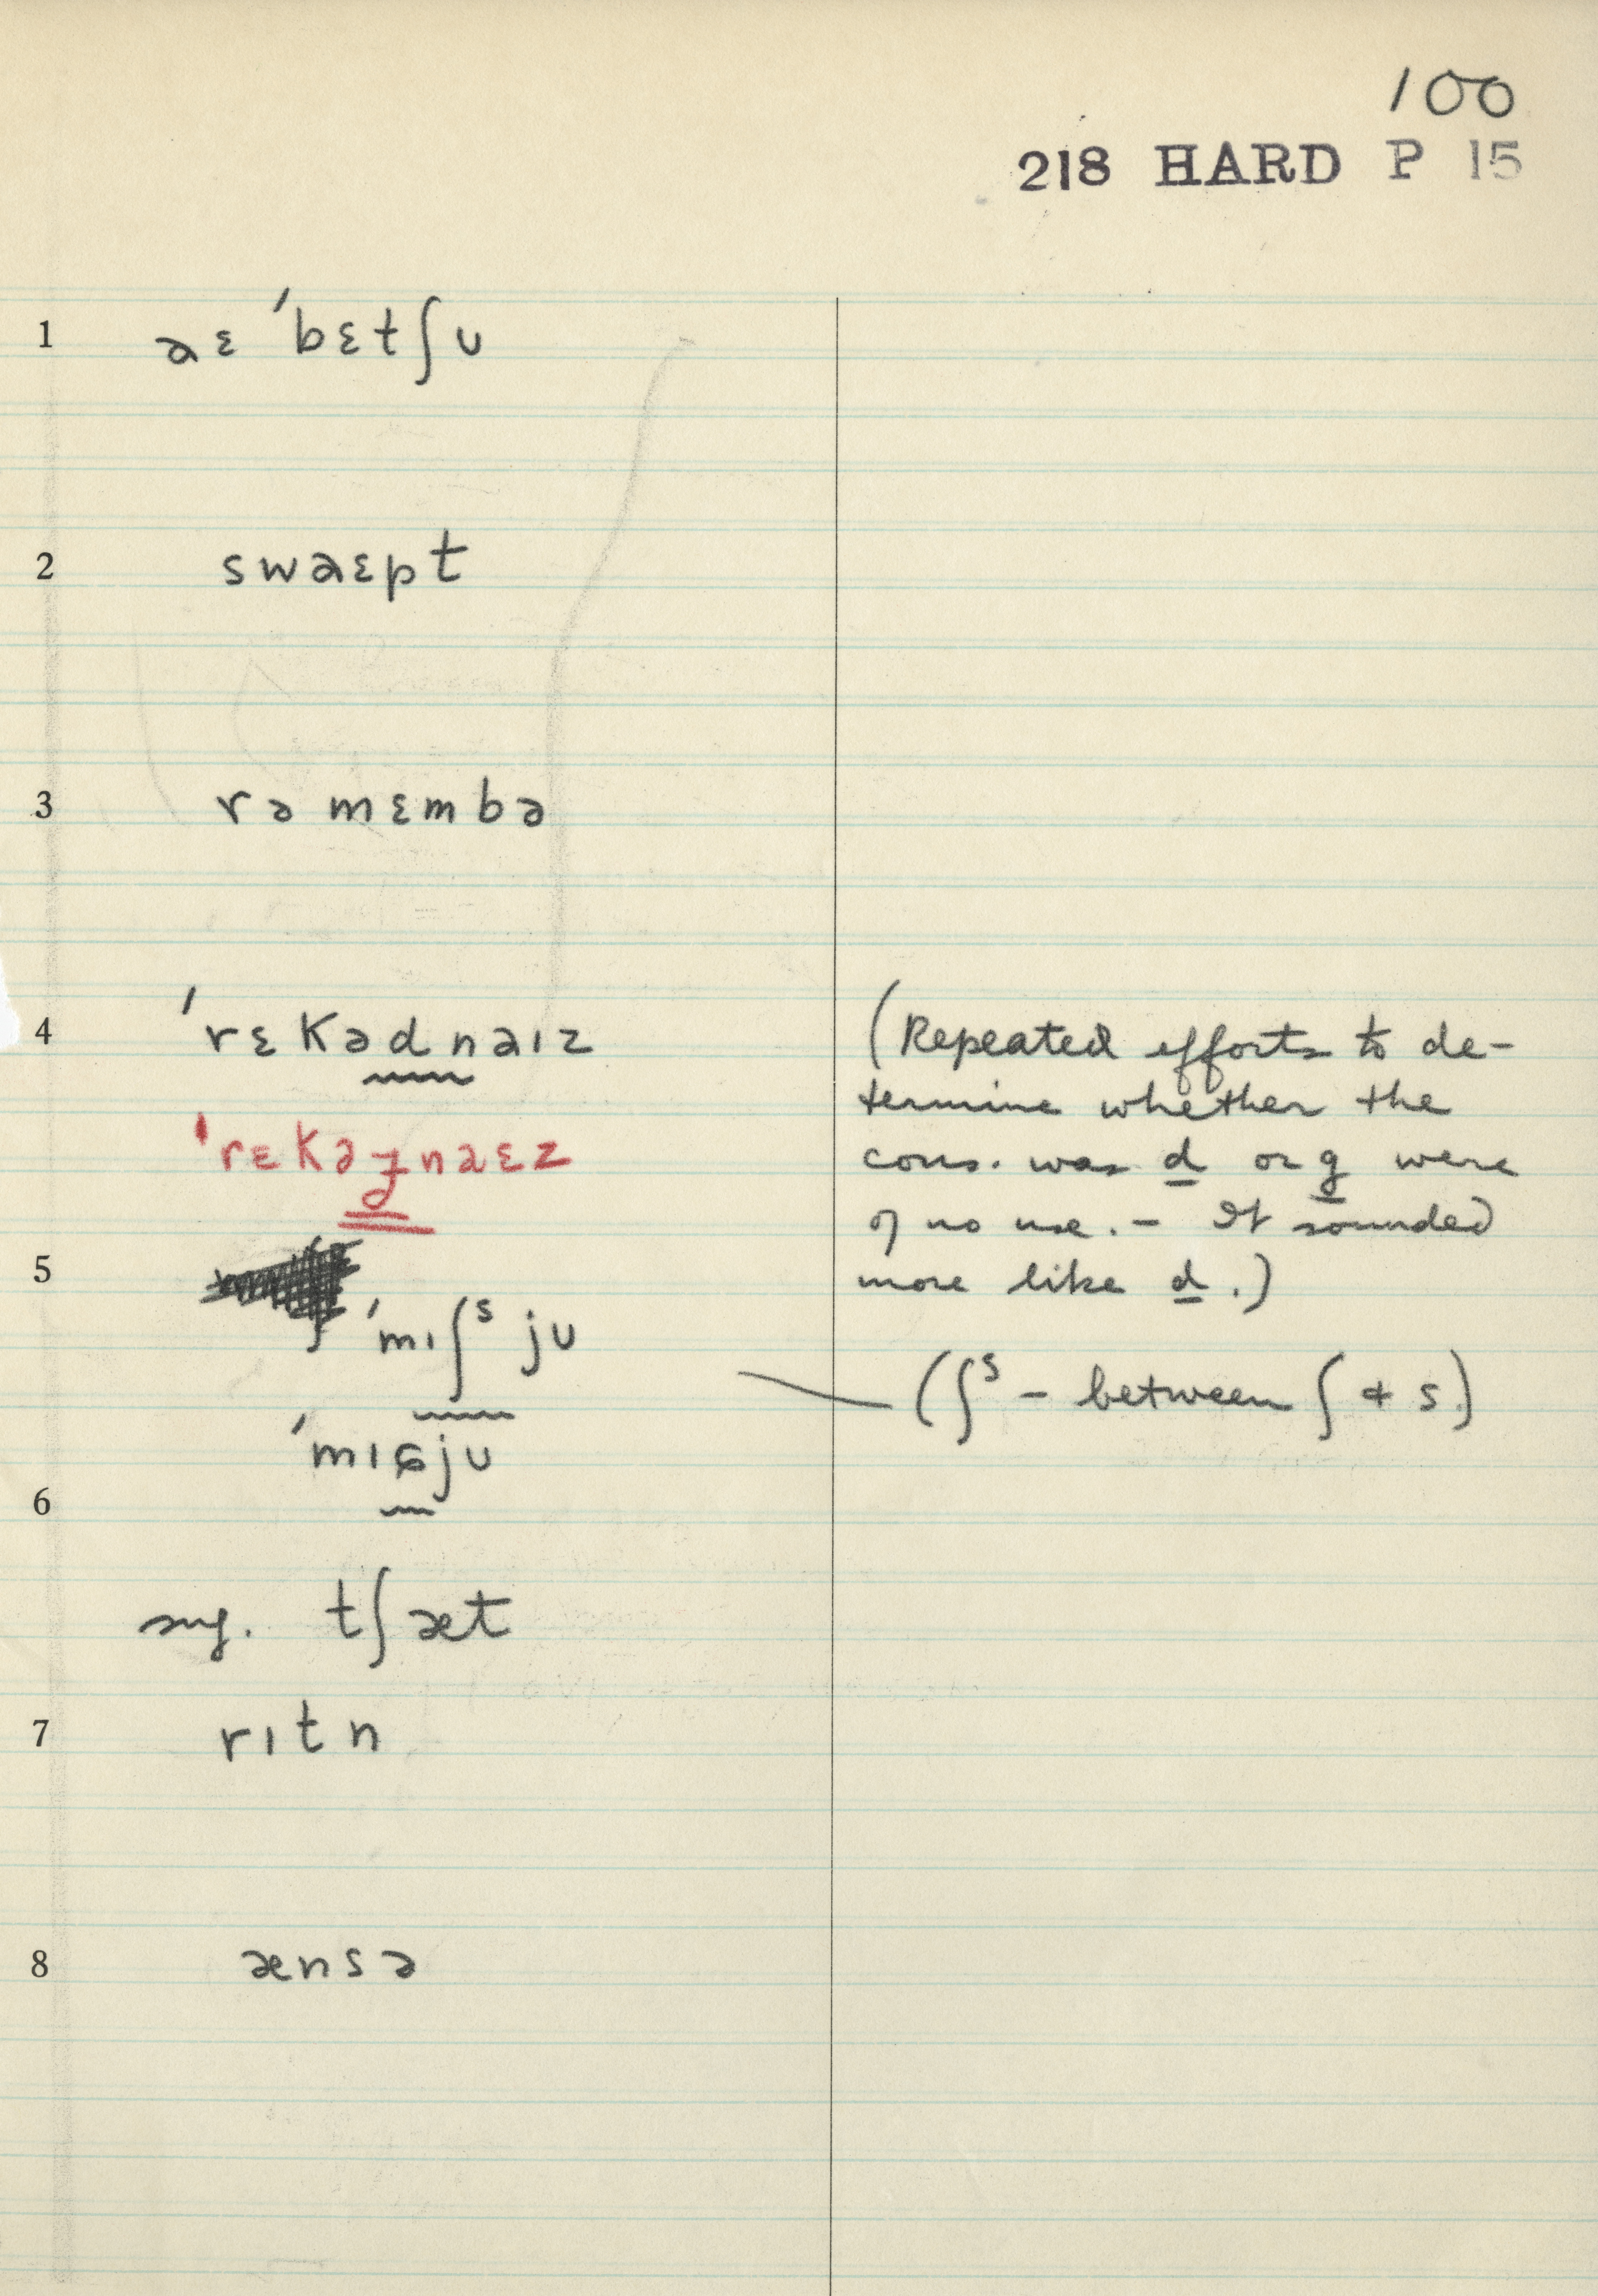 100
218 HARD P 15
1 aɛ ˈbɛtʃʊ
2 swaɛpt
3 rəmɛmbə
4 ˈrɛkədnaɪz
(Repeated efforts to de-
termine whether the
ˈrɛkəɟnaɛz
cons. was d or g were
of no use. – It sounded
5
more like d.)
ˈmɪʃˢ jʊ
(ʃˢ – between ʃ + s)
ˈmɪɕjʊ
6
sug. tʃæt
7 rɪtn
8 ænsə